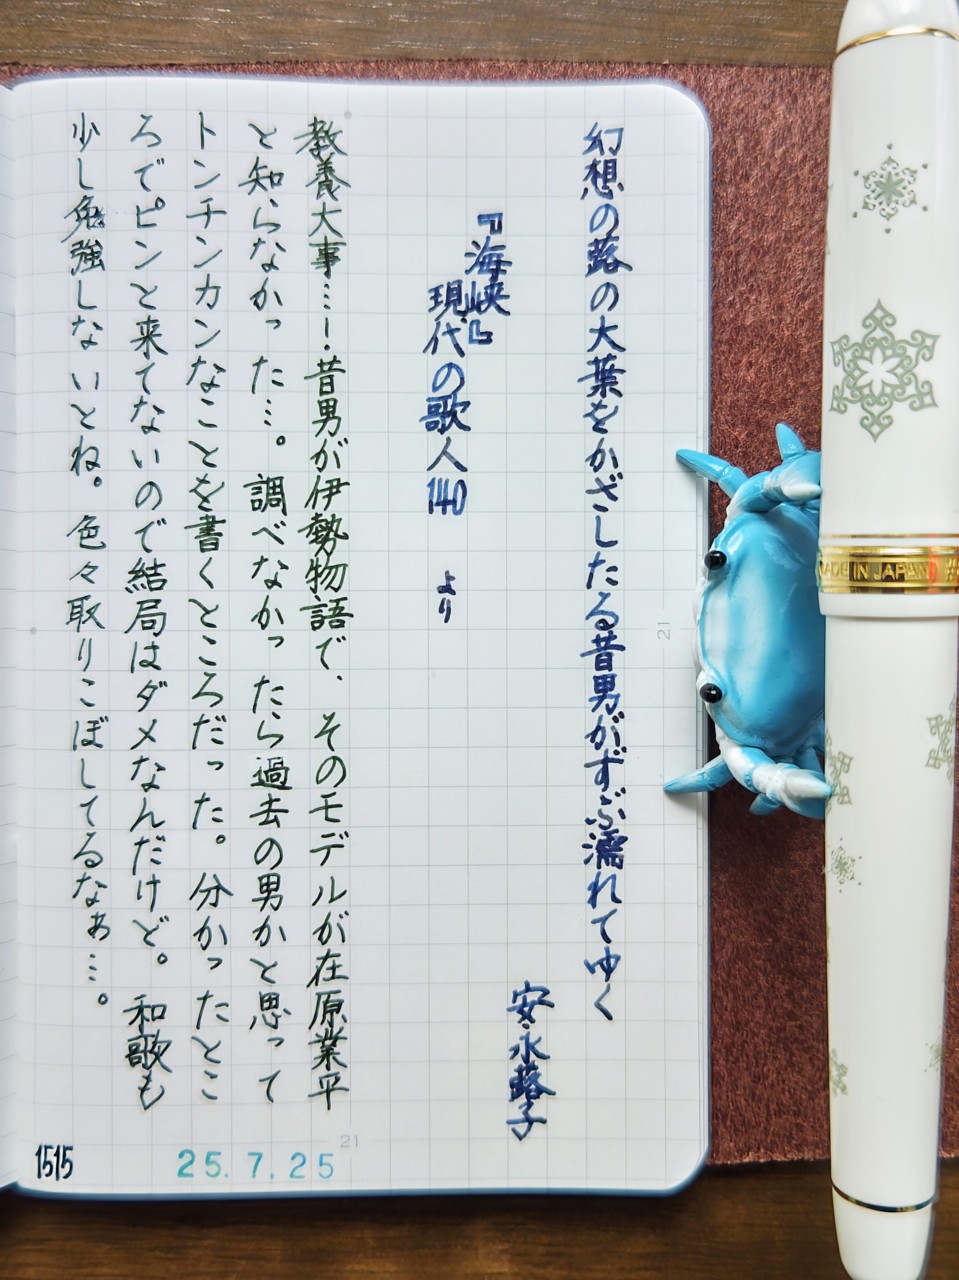 幻想の蕗の大葉をかざしたる昔男がずぶ濡れてゆく
安永蕗子
『海峡』
現代の歌人140 より
教養大事…！昔男が伊勢物語で、そのモデルが在原業平
と知らなかった…。調べなかったら過去の男かと思って
トンチンカンなことを書くところだった。分かったとこ
ろでピンと来てないので結局はダメなんだけど。和歌も
少し勉強しないとね。色々取りこぼしてるなぁ…。
1515
25.7.25
21
21
MADE IN JAPAN